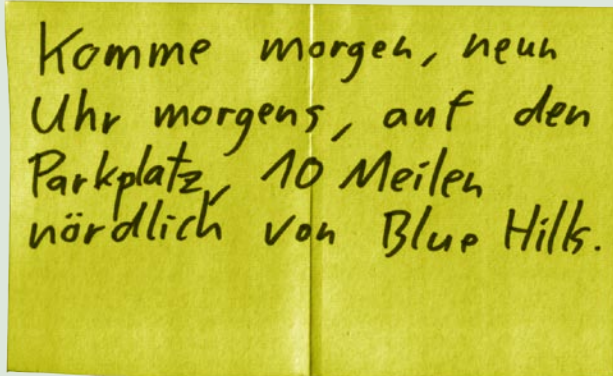 Komme morgen, neun
Uhr morgens, auf den
Parkplatz, 10 Meilen
nördlich von Blue Hills.